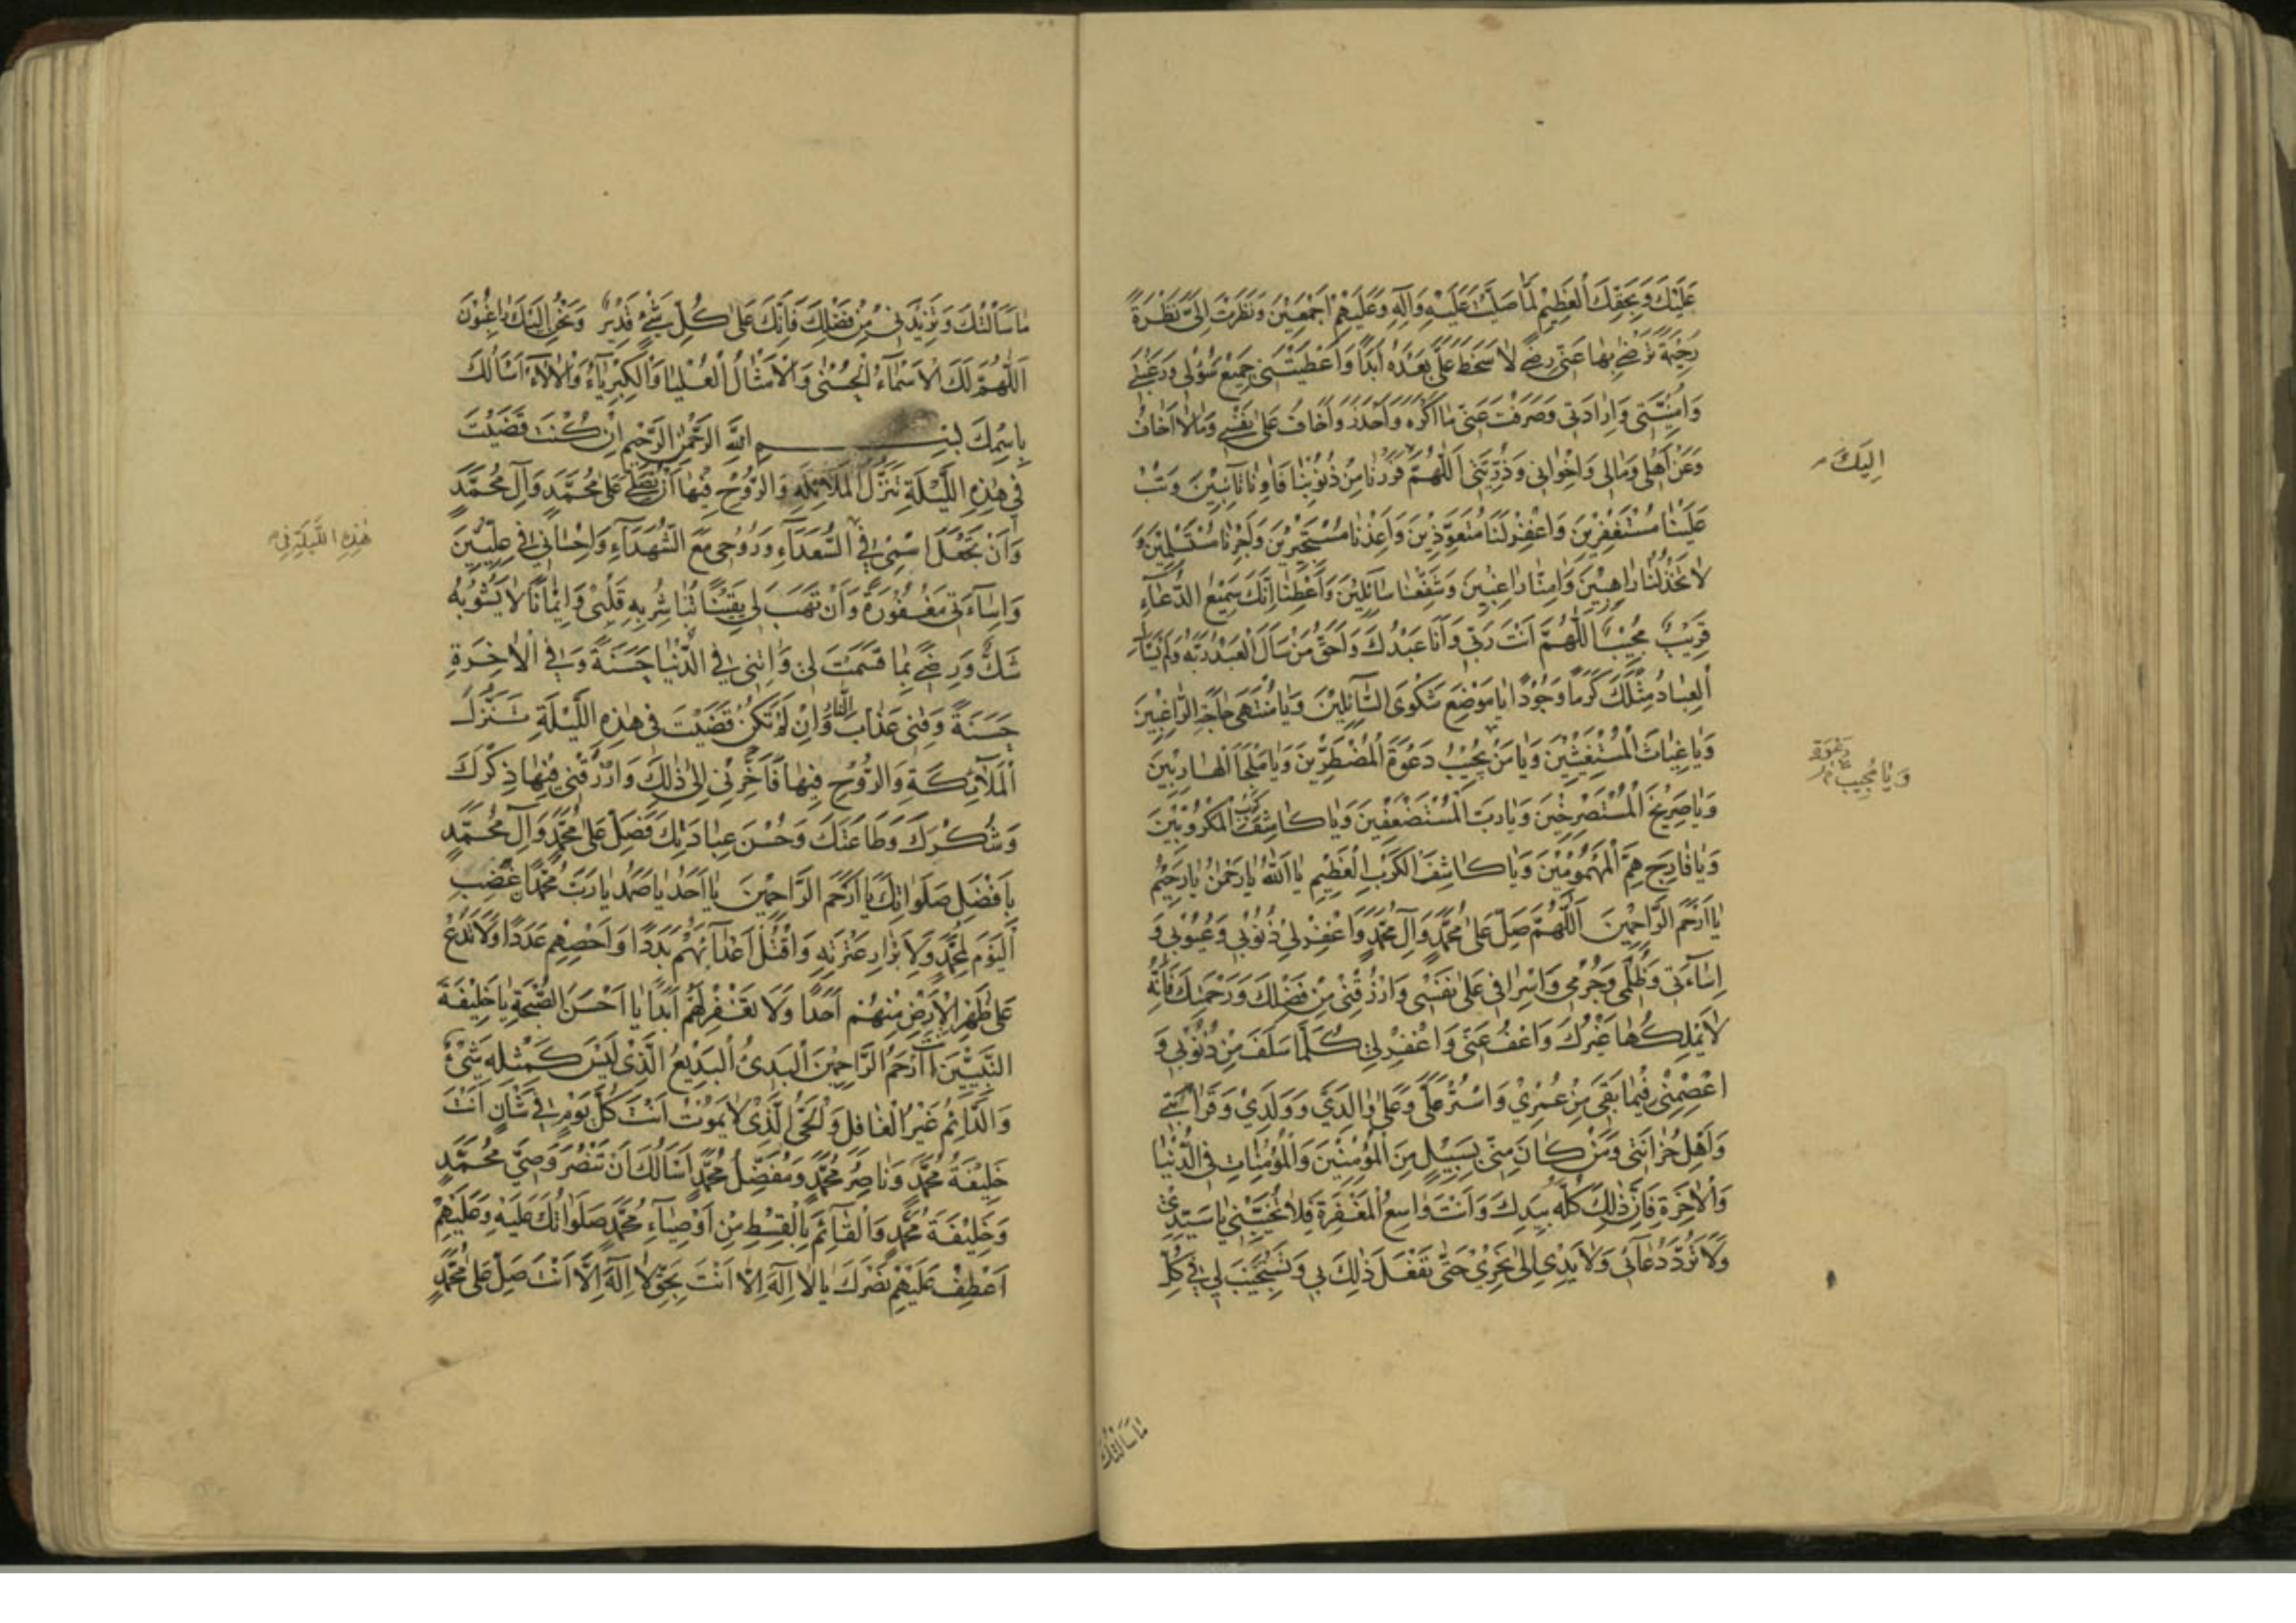 عَلَيْكَ وَبِحَقِّكَ الْعَظِيْمِ لَمَّا صَلَّيْتَ عَلَيْهِ وَآلِهِ وَعَلَيْهِمْ اَجْمَعِيْنَ وَنَظَرْتَ اِلَيَّ نَظْرَةً
رَحِيْمَةً تَرْضٰى بِهَا عَنِّي رِضًى لَا سَخَطَ عَلَيَّ بَعْدَهُ اَبَدًا وَاَعْطَيْتَنِي جَمِيْعَ سُؤْلِي وَرَغْبَتِي
وَاُمْنِيَّتِي وَاِرَادَتِي وَصَرَفْتَ عَنِّي مَا اَكْرَهُ وَاَحْذَرُ وَاَخَافُ عَلٰى نَفْسِي وَمَا لَا اَخَافُ
وَعَنْ اَهْلِي وَمَالِي وَاِخْوَانِي وَذُرِّيَّتِي اَللّٰهُمَّ فَرَرْنَا مِنْ ذُنُوْبِنَا فَاٰوِنَا تَائِبِيْنَ وَتُبْ
اِلَيْكَ
عَلَيْنَا مُسْتَغْفِرِيْنَ وَاغْفِرْ لَنَا مُتَعَوِّذِيْنَ وَاَعِذْنَا مُسْتَجِيْرِيْنَ وَاَجِرْنَا مُسْتَسْلِمِيْنَ وَ
لَا تَخْذُلْنَا رَاهِبِيْنَ وَاٰمِنَّا رَاغِبِيْنَ وَشَفِّعْنَا سَائِلِيْنَ وَاَعْطِنَا اِنَّكَ سَمِيْعُ الدُّعَاءِ
قَرِيْبٌ مُجِيْبٌ اَللّٰهُمَّ اَنْتَ رَبِّي وَاَنَا عَبْدُكَ وَاَحَقُّ مَنْ سَاَلَ الْعَبْدُ رَبَّهُ وَلَمْ يَسْأَلِ
الْعِبَادُ مِثْلَكَ كَرَمًا وَجُوْدًا يَا مَوْضِعَ شَكْوَى السَّائِلِيْنَ وَيَا مُنْتَهٰى حَاجَةِ الرَّاغِبِيْنَ
وَيَا غِيَاثَ الْمُسْتَغِيْثِيْنَ وَيَا مَنْ يُجِيْبُ دَعْوَةَ الْمُضْطَرِّيْنَ وَيَا مَلْجَأَ الْهَارِبِيْنَ
وَيَا مُجِيْبَ دَعْوَةِ
وَيَا صَرِيْخَ الْمُسْتَصْرِخِيْنَ وَيَا رَبَّ الْمُسْتَضْعَفِيْنَ وَيَا كَاشِفَ كَرْبِ الْمَكْرُوْبِيْنَ
وَيَا فَارِجَ هَمِّ الْمَهْمُوْمِيْنَ وَيَا كَاشِفَ الْكَرْبِ الْعَظِيْمِ يَا اَللّٰهُ يَا رَحْمٰنُ يَا رَحِيْمُ
يَا اَرْحَمَ الرَّاحِمِيْنَ اَللّٰهُمَّ صَلِّ عَلٰى مُحَمَّدٍ وَآلِ مُحَمَّدٍ وَاغْفِرْ لِي ذُنُوْبِي وَعُيُوْبِي وَ
اِسَاءَتِي وَظُلْمِي وَجُرْمِي وَاِسْرَافِي عَلٰى نَفْسِي وَارْزُقْنِي مِنْ فَضْلِكَ وَرَحْمَتِكَ فَاِنَّهُ
لَا يَمْلِكُهَا غَيْرُكَ وَاعْفُ عَنِّي وَاغْفِرْ لِي كُلَّمَا سَلَفَ مِنْ ذُنُوْبِي وَ
اعْصِمْنِي فِيْمَا بَقِيَ مِنْ عُمْرِي وَاسْتُرْ عَلَيَّ وَعَلٰى وَالِدَيَّ وَوَلَدِيْ وَقَرَابَتِي
وَاَهْلِ حُزَانَتِي وَمَنْ كَانَ مِنِّي بِسَبِيْلٍ مِنَ الْمُؤْمِنِيْنَ وَالْمُؤْمِنَاتِ فِي الدُّنْيَا
وَالْاٰخِرَةِ فَاِنَّ ذٰلِكَ كُلَّهُ بِيَدِكَ وَاَنْتَ وَاسِعُ الْمَغْفِرَةِ فَلَا تُخَيِّبْنِي يَا سَيِّدِي
وَلَا تَرُدَّ دُعَائِي وَلَا يَدِي اِلٰى نَحْرِي حَتّٰى تَفْعَلَ ذٰلِكَ بِي وَتَسْتَجِيْبَ لِي فِي كُلِّ
مَا سَاَلْتُكَ
مَا سَاَلْتُكَ وَتَزِيْدَنِي مِنْ فَضْلِكَ فَاِنَّكَ عَلٰى كُلِّ شَيْءٍ قَدِيْرٌ وَنَحْنُ اِلَيْكَ رَاغِبُوْنَ
اَللّٰهُمَّ لَكَ الْاَسْمَاءُ الْحُسْنٰى وَالْاَمْثَالُ الْعُلْيَا وَالْكِبْرِيَاءُ وَالْاٰلَاءُ اَسْأَلُكَ
بِاسْمِكَ بِسْمِ اللّٰهِ الرَّحْمٰنِ الرَّحِيْمِ اِنْ كُنْتَ قَضَيْتَ
فِي هٰذِهِ اللَّيْلَةِ تَنَزُّلَ الْمَلَائِكَةِ وَالرُّوْحِ فِيْهَا اَنْ تُصَلِّيَ عَلٰى مُحَمَّدٍ وَآلِ مُحَمَّدٍ
وَاَنْ تَجْعَلَ اسْمِي فِي السُّعَدَاءِ وَرُوْحِي مَعَ الشُّهَدَاءِ وَاِحْسَانِي فِي عِلِّيِّيْنَ
هٰذِهِ اللَّيْلَةِ فِي
وَاِسَاءَتِي مَغْفُوْرَةً وَاَنْ تَهَبَ لِي يَقِيْنًا تُبَاشِرُ بِهِ قَلْبِي وَاِيْمَانًا لَا يَشُوْبُهُ
شَكٌّ وَرِضًى بِمَا قَسَمْتَ لِي وَاٰتِنِي فِي الدُّنْيَا حَسَنَةً وَفِي الْاٰخِرَةِ
حَسَنَةً وَقِنِي عَذَابَ النَّارِ وَاِنْ لَمْ تَكُنْ قَضَيْتَ فِي هٰذِهِ اللَّيْلَةِ تَنَزُّلَ
الْمَلَائِكَةِ وَالرُّوْحِ فِيْهَا فَاَخِّرْنِي اِلٰى ذٰلِكَ وَارْزُقْنِي فِيْهَا ذِكْرَكَ
وَشُكْرَكَ وَطَاعَتَكَ وَحُسْنَ عِبَادَتِكَ فَصَلِّ عَلٰى مُحَمَّدٍ وَآلِ مُحَمَّدٍ
بِاَفْضَلِ صَلَوَاتِكَ يَا اَرْحَمَ الرَّاحِمِيْنَ يَا اَحَدُ يَا صَمَدُ يَا رَبَّ مُحَمَّدٍ اغْضَبِ
الْيَوْمَ لِمُحَمَّدٍ وَلِاَبْرَارِ عِتْرَتِهِ وَاقْتُلْ اَعْدَائَهُمْ بَدَدًا وَاَحْصِهِمْ عَدَدًا وَلَا تَدَعْ
عَلٰى ظَهْرِ الْاَرْضِ مِنْهُمْ اَحَدًا وَلَا تَغْفِرْ لَهُمْ اَبَدًا يَا اَحْسَنَ الصُّحْبَةِ يَا خَلِيْفَةَ
النَّبِيِّيْنَ اَنْتَ اَرْحَمُ الرَّاحِمِيْنَ الْبَدِيءُ الْبَدِيْعُ الَّذِي لَيْسَ كَمِثْلِهِ شَيْءٌ
وَالدَّائِمُ غَيْرُ الْغَافِلِ وَالْحَيُّ الَّذِي لَا يَمُوْتُ اَنْتَ كُلَّ يَوْمٍ فِي شَأْنٍ اَنْتَ
خَلِيْفَةُ مُحَمَّدٍ وَنَاصِرُ مُحَمَّدٍ وَمُفَضِّلُ مُحَمَّدٍ اَسْأَلُكَ اَنْ تَنْصُرَ وَصِيَّ مُحَمَّدٍ
وَخَلِيْفَةَ مُحَمَّدٍ وَالْقَائِمَ بِالْقِسْطِ مِنْ اَوْصِيَاءِ مُحَمَّدٍ صَلَوَاتُكَ عَلَيْهِ وَعَلَيْهِمْ
اَعْطِفْ عَلَيْهِمْ نَصْرَكَ يَا لَا اِلٰهَ اِلَّا اَنْتَ بِحَقِّ لَا اِلٰهَ اِلَّا اَنْتَ صَلِّ عَلٰى مُحَمَّدٍ